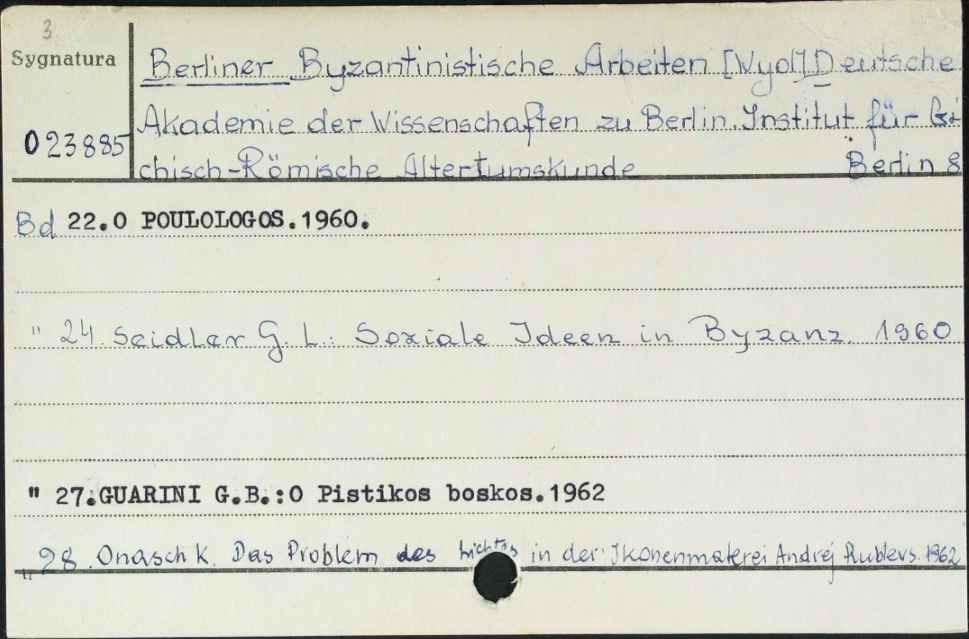 3
Sygnatura
023885
Berliner Byzantinistische Arbeiten [Wyd] Deutsche
Akademie der Wissenschaften zu Berlin. Institut für Gri
chisch-Römische Altertumskunde Berlin 8
Bd 22.O POULOLOGOS.1960.
" 24. Seidler G. L.: Soziale Ideen in Byzanz. 1960
" 27.GUARINI G.B.:O Pistikos boskos.1962
" 28. Onasch K. Das Problem des Lichtes in der Ikonenmalerei Andrej Rublevs. 1962